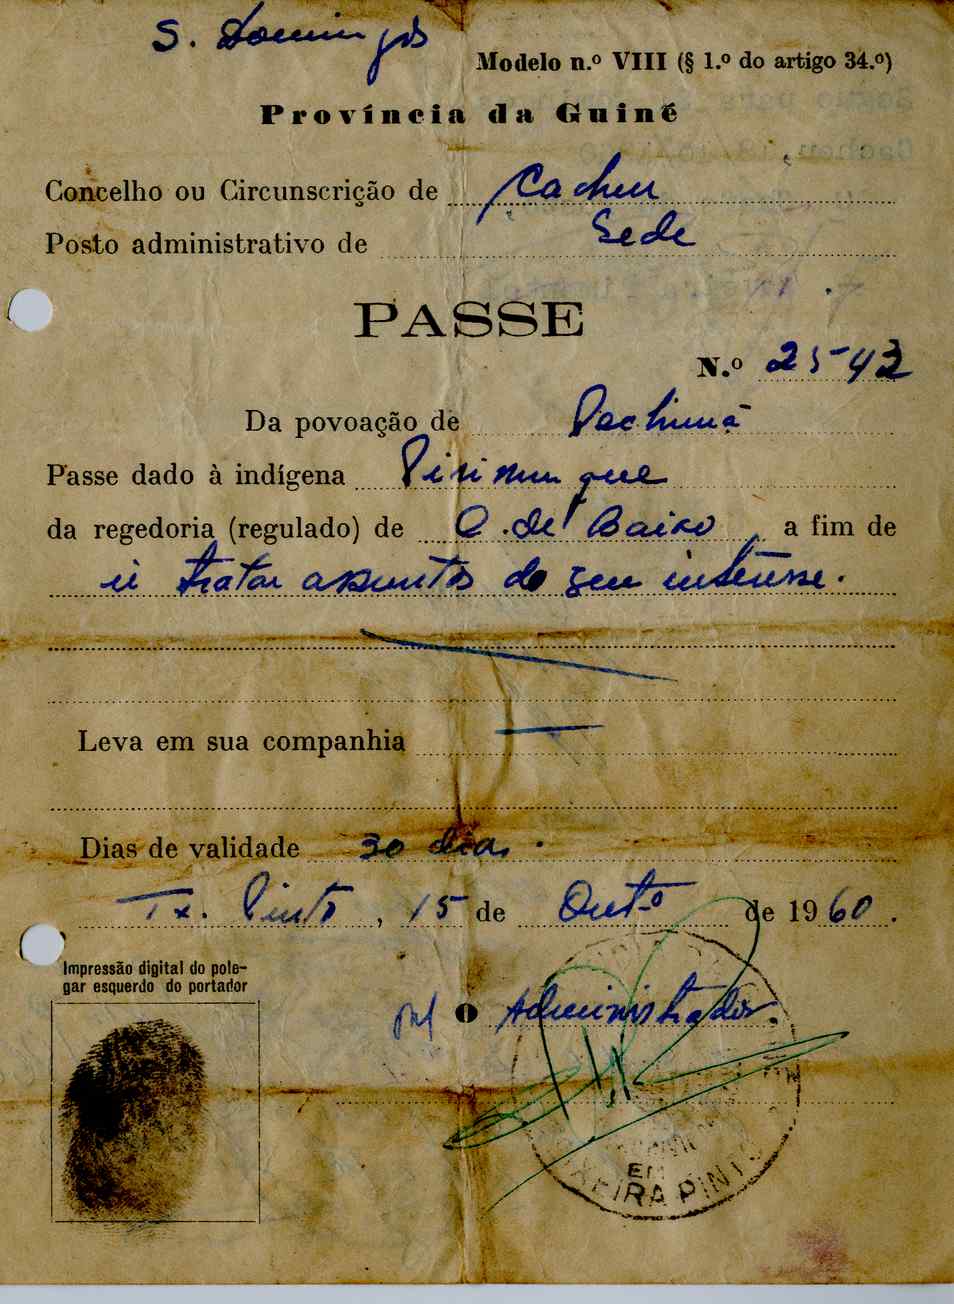 S. Domingos
Modelo n.º VIII (§ 1.º do artigo 34.º)
Província da Guiné
Concelho ou Circunscrição de Cacheu
Posto administrativo de Sede
PASSE
N.º 2543
Da povoação de
Passe dado à indígena
da regedoria (regulado) de C. de Baixo, a fim de
ir tratar assuntos do seu interesse.
Leva em sua companhia
Dias de validade 30 dias.
Tx. Pinto, 15 de Outº de 1960.
Impressão digital do pole-
gar esquerdo do portador
O Administrador.
EM
TEIXEIRA PINTO